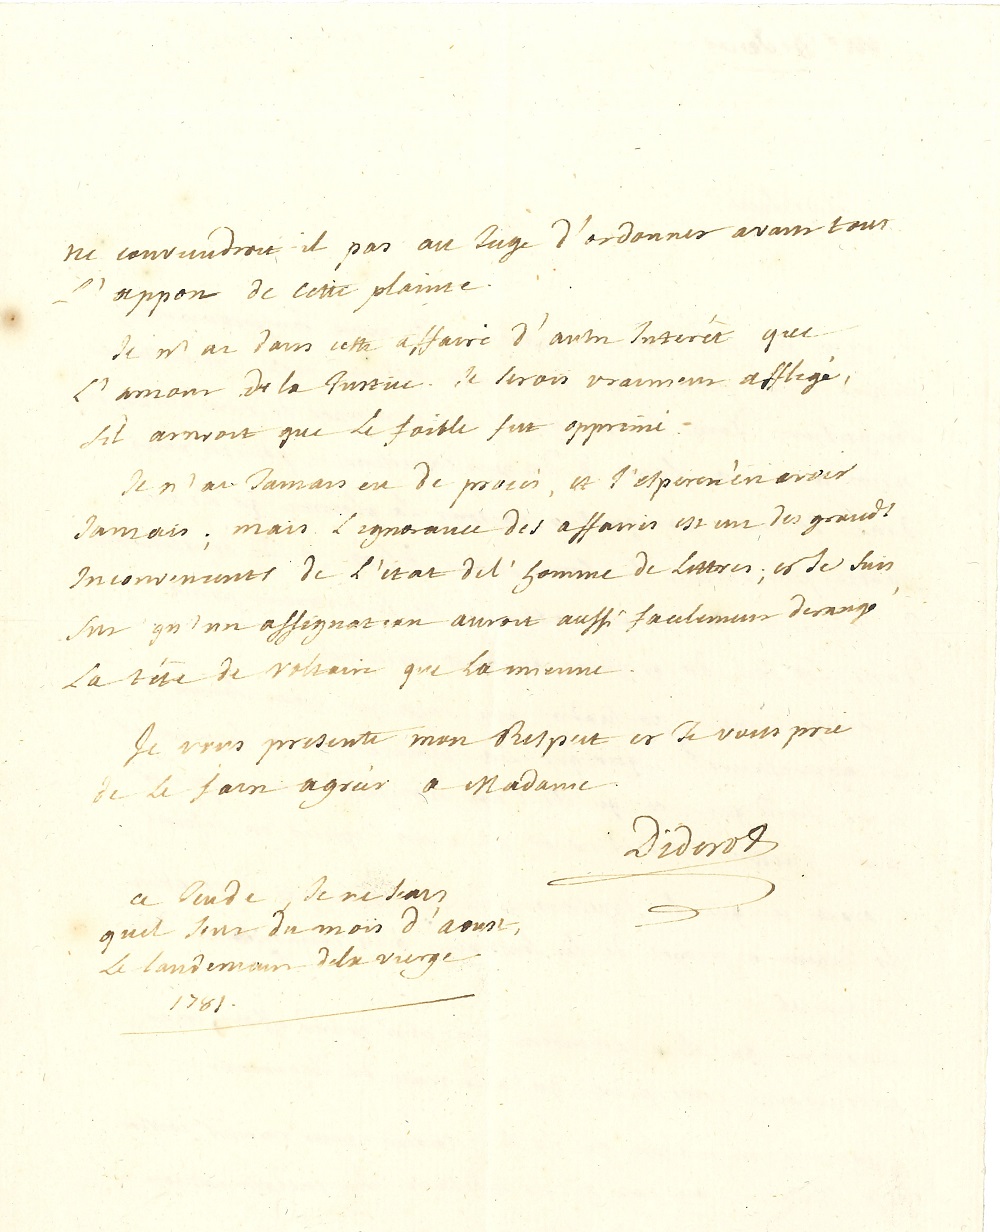 ne conviendroit il pas au Juge d'ordonner avant tout
l'apport de cette plainte.
Je n'ai dans cette affaire d'autre Interêt que
L'amour de la Justice. Je serois vraiment affligé,
s'il arrivoit que le foible fut opprimé.
Je n'ai Jamais eu de procès, et J'espere n'en avoir
Jamais ; mais L'ignorance des affaires est un des grands
Inconvenients de L'etat de l'homme de Lettres ; et Je suis
sur qu'un assignation auroit aussi facilement derangé
La tête de Voltaire que La mienne.
Je vous presente mon Respect et Je vous prie
de Le faire agréér a Madame.
Diderot
ce Jeude, Je ne sais
quel Jour du mois d'aoust,
Le landemain de la vierge
1781.